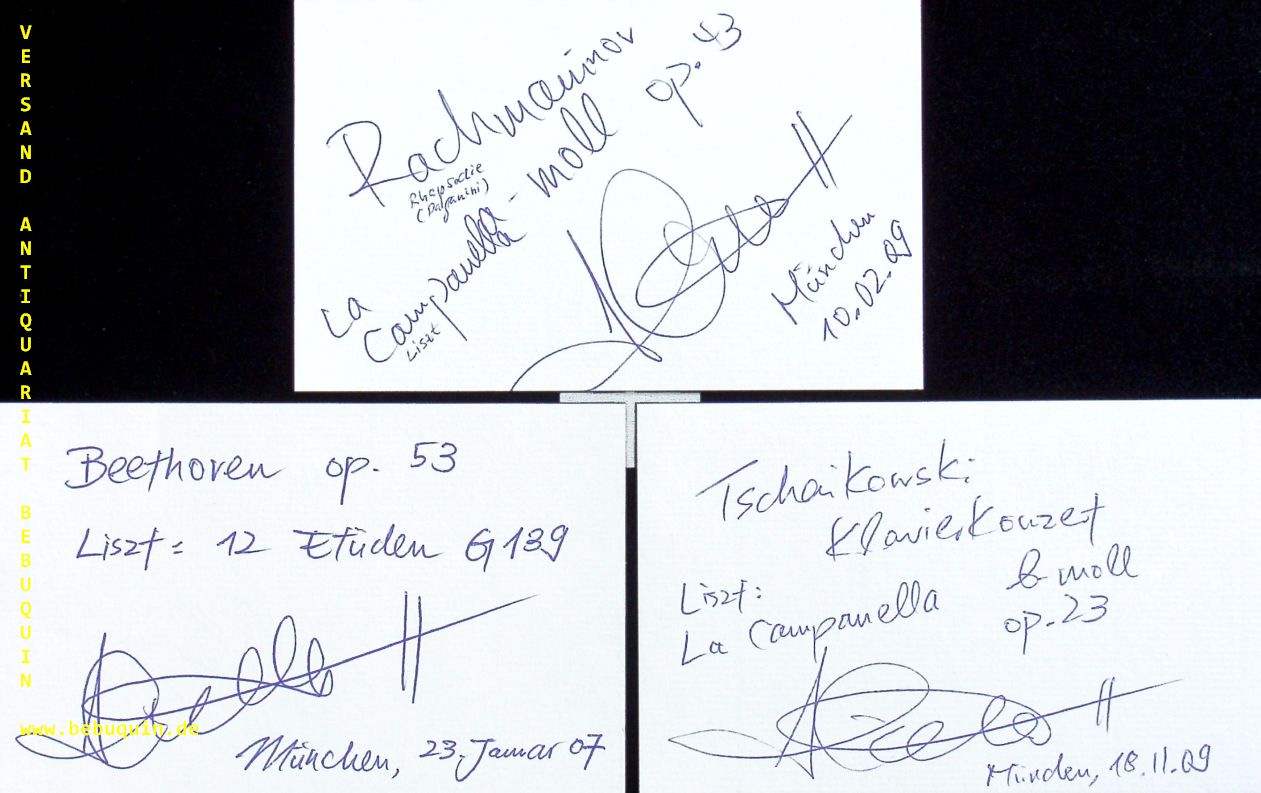 VERSAND ANTIQUARIAT BEBUQUIN
www.bebuquin.de
Rachmaninov
op. 43
Rhapsodie
(Paganini)
- moll
La
Campanella
Liszt
München
10.02.09
Beethoven op. 53
Liszt: 12 Etüden G 139
München, 23. Januar 07
Tschaikowski:
Klavierkonzert
b-moll
op. 23
Liszt:
La Campanella
München, 18.11.09